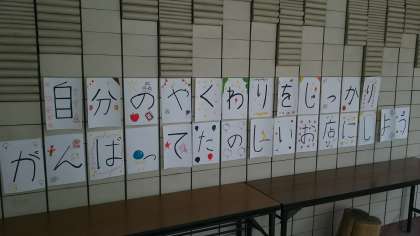 自分のやくわりをしっかり
がんばってたのしいお店にしよう